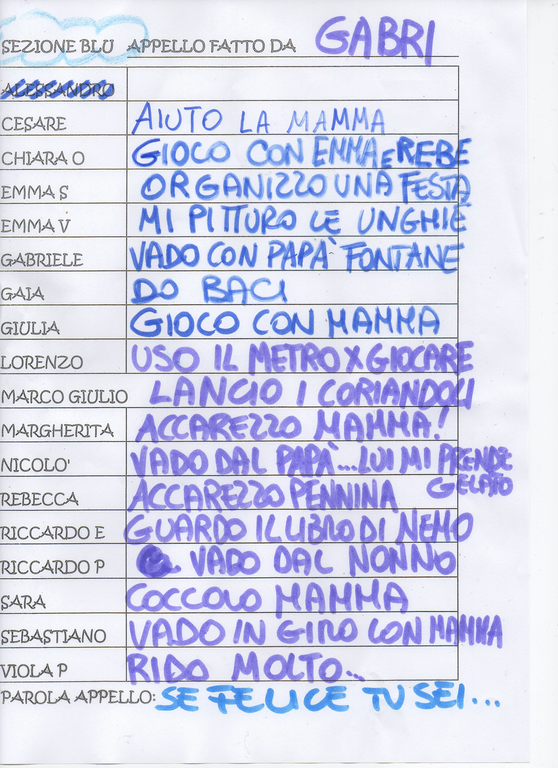 SEZIONE BLU APPELLO FATTO DA GABRI
ALESSANDRO
CESARE AIUTO LA MAMMA
CHIARA O GIOCO CON EMMA E REBE
EMMA S ORGANIZZO UNA FESTA
EMMA V MI PITTURO LE UNGHIE
GABRIELE VADO CON PAPA' FONTANE
GAIA DO BACI
GIULIA GIOCO CON MAMMA
LORENZO USO IL METRO X GIOCARE
MARCO GIULIO LANCIO I CORIANDOLI
MARGHERITA ACCAREZZO MAMMA!
NICOLO' VADO DAL PAPA'...LUI MI PRENDE GELATO
REBECCA ACCAREZZO PENNINA
RICCARDO E GUARDO IL LIBRO DI NEMO
RICCARDO P VADO DAL NONNO
SARA COCCOLO MAMMA
SEBASTIANO VADO IN GIRO CON MAMMA
VIOLA P RIDO MOLTO...
PAROLA APPELLO: SE FELICE TU SEI...